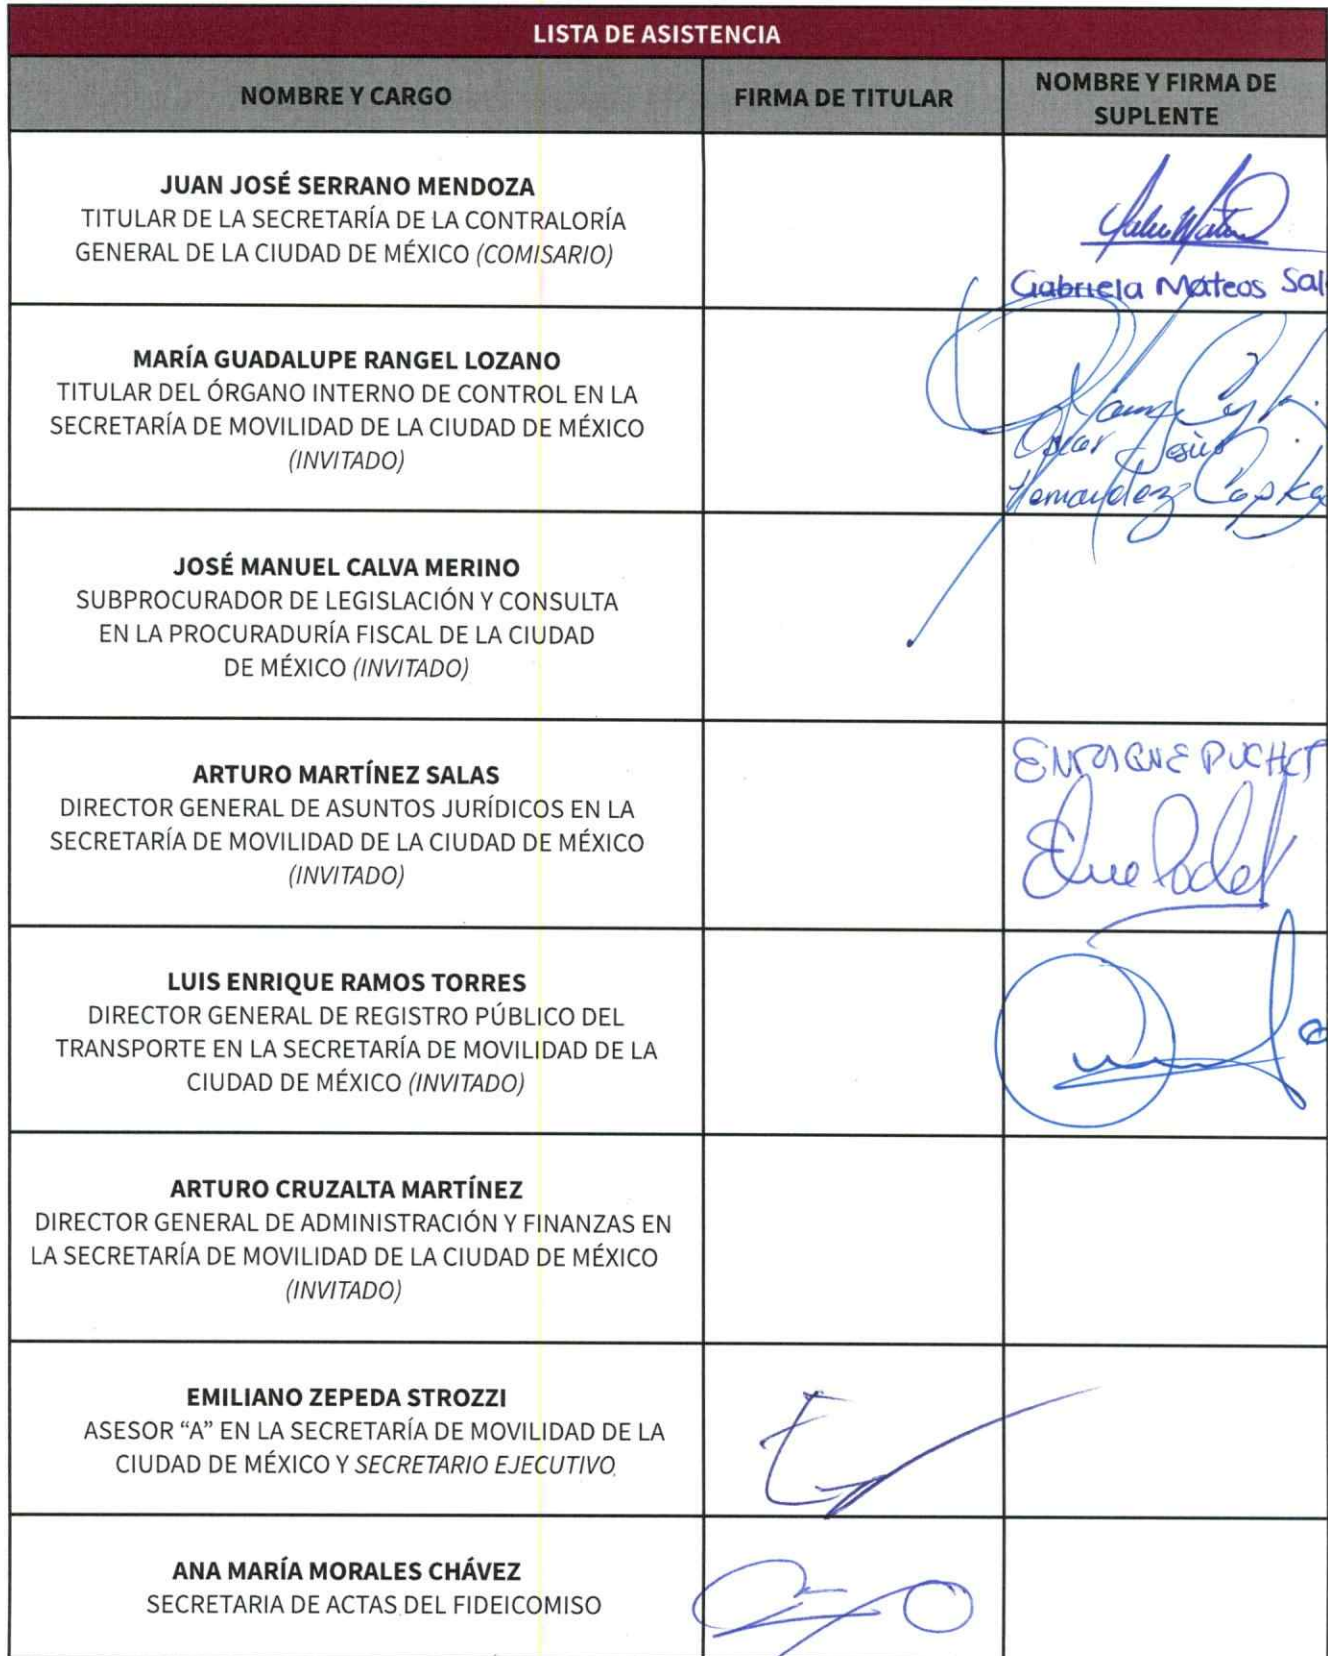 LISTA DE ASISTENCIA
NOMBRE Y CARGO
FIRMA DE TITULAR
NOMBRE Y FIRMA DE
SUPLENTE
JUAN JOSÉ SERRANO MENDOZA
TITULAR DE LA SECRETARÍA DE LA CONTRALORÍA
GENERAL DE LA CIUDAD DE MÉXICO (COMISARIO)
Gabriela Mateos Sal
MARÍA GUADALUPE RANGEL LOZANO
TITULAR DEL ÓRGANO INTERNO DE CONTROL EN LA
SECRETARÍA DE MOVILIDAD DE LA CIUDAD DE MÉXICO
(INVITADO)
Oscar Jesús
Hernandez
JOSÉ MANUEL CALVA MERINO
SUBPROCURADOR DE LEGISLACIÓN Y CONSULTA
EN LA PROCURADURÍA FISCAL DE LA CIUDAD
DE MÉXICO (INVITADO)
ARTURO MARTÍNEZ SALAS
DIRECTOR GENERAL DE ASUNTOS JURÍDICOS EN LA
SECRETARÍA DE MOVILIDAD DE LA CIUDAD DE MÉXICO
(INVITADO)
ENRIQUE PUCHET
LUIS ENRIQUE RAMOS TORRES
DIRECTOR GENERAL DE REGISTRO PÚBLICO DEL
TRANSPORTE EN LA SECRETARÍA DE MOVILIDAD DE LA
CIUDAD DE MÉXICO (INVITADO)
ARTURO CRUZALTA MARTÍNEZ
DIRECTOR GENERAL DE ADMINISTRACIÓN Y FINANZAS EN
LA SECRETARÍA DE MOVILIDAD DE LA CIUDAD DE MÉXICO
(INVITADO)
EMILIANO ZEPEDA STROZZI
ASESOR “A” EN LA SECRETARÍA DE MOVILIDAD DE LA
CIUDAD DE MÉXICO Y SECRETARIO EJECUTIVO
ANA MARÍA MORALES CHÁVEZ
SECRETARIA DE ACTAS DEL FIDEICOMISO